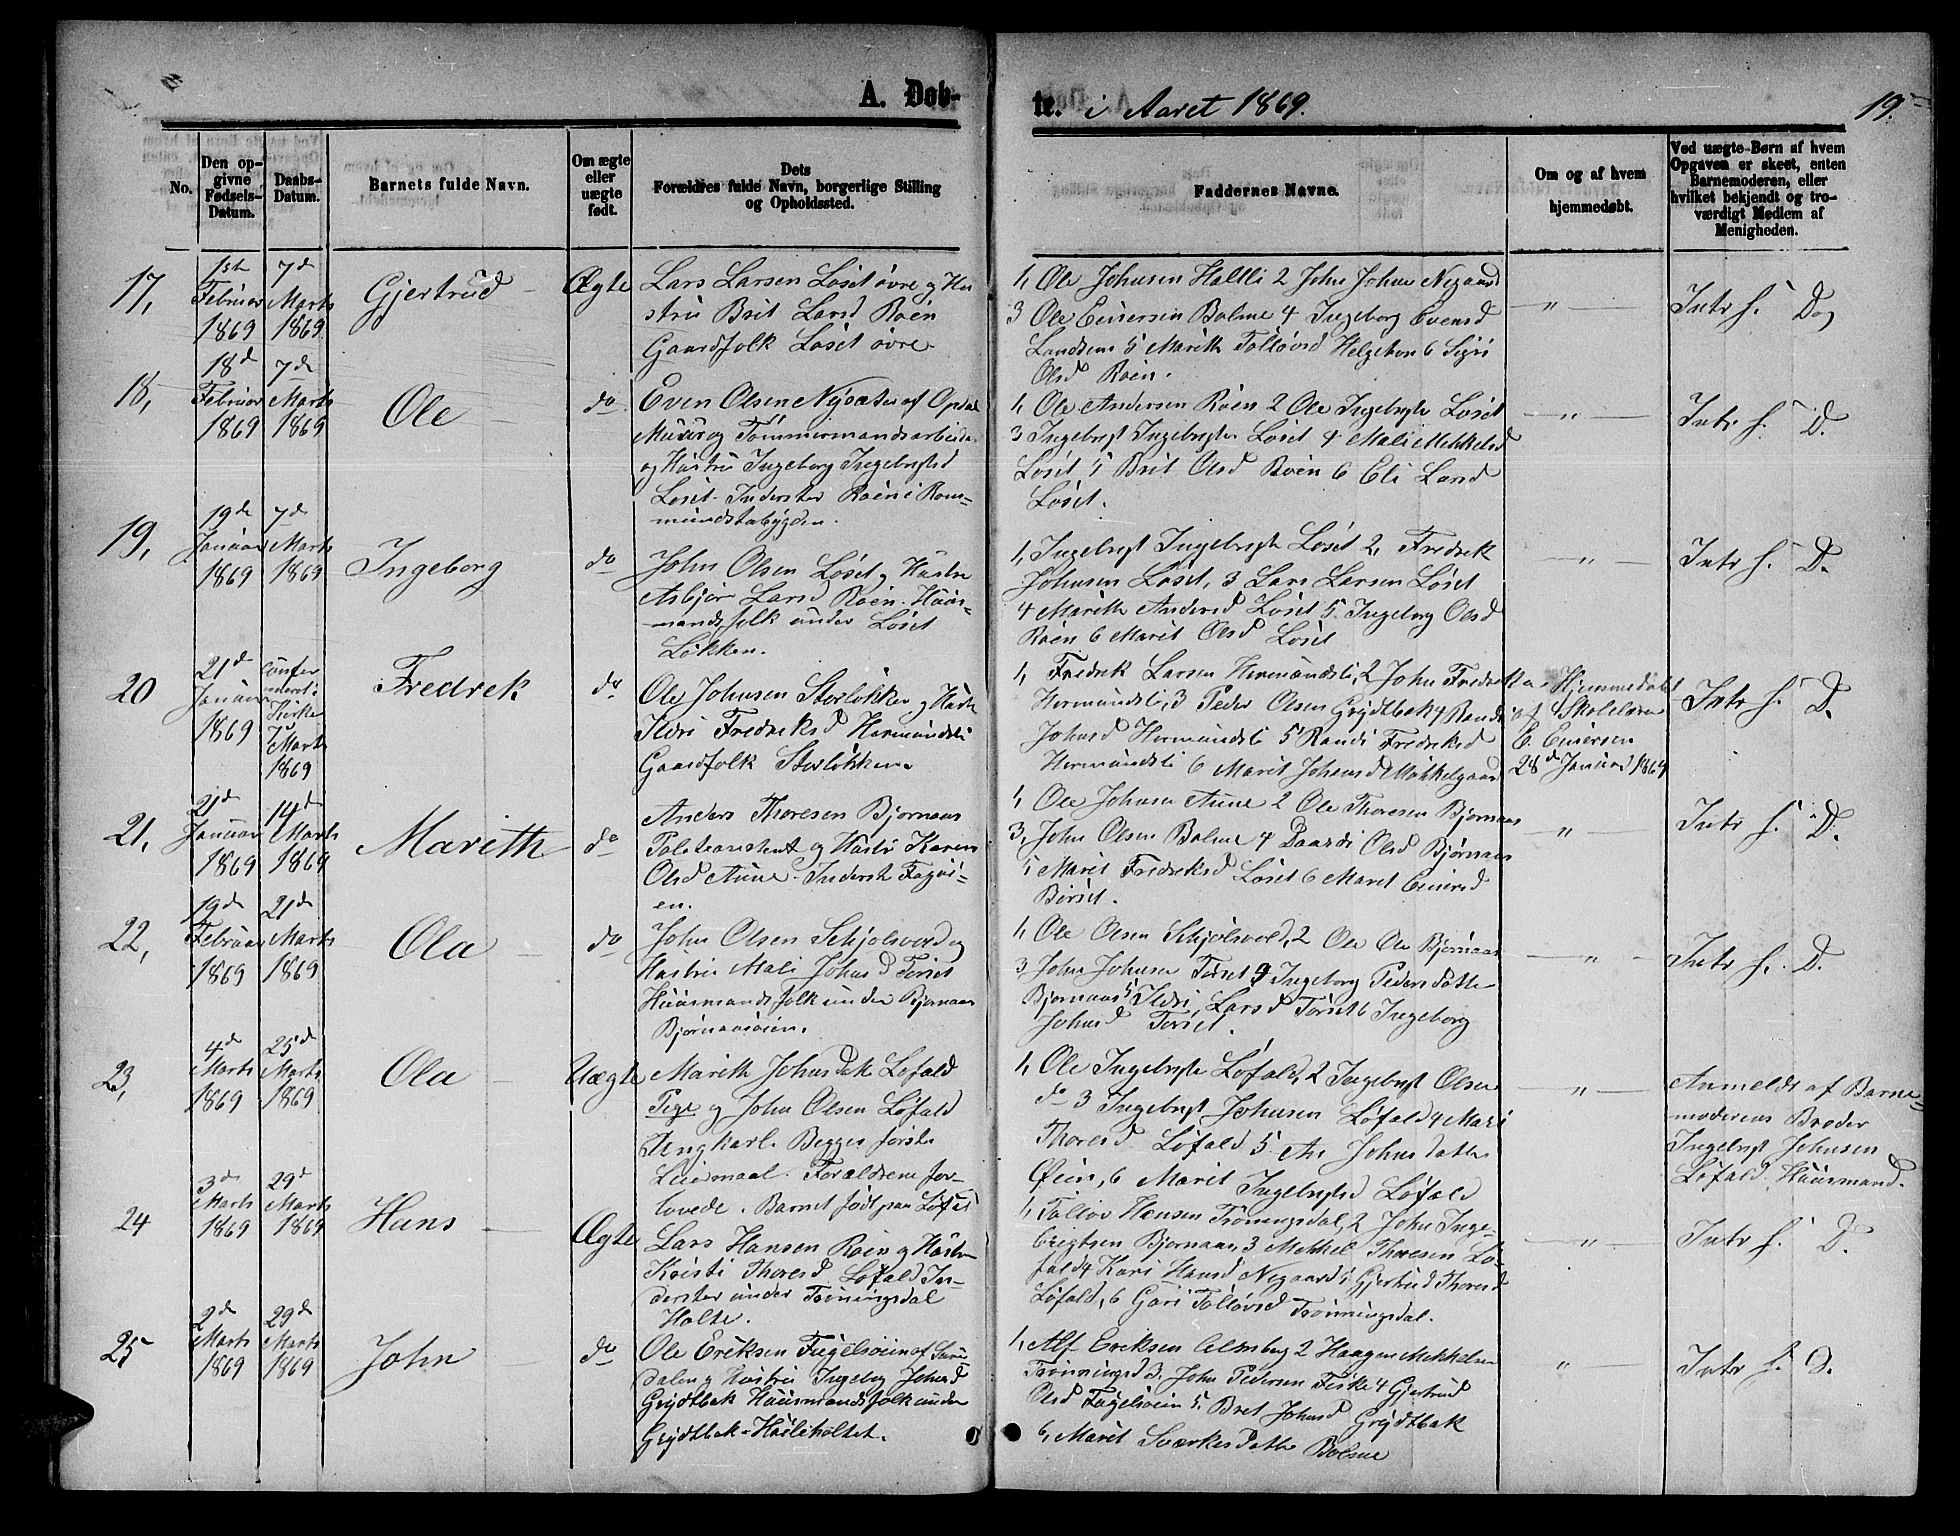 A. Døb-
te. i Aaret 1869.
19.
No.
Den op-
givne
Fødsels-
Datum.
Daabs-
Datum.
Barnets fulde Navn.
Om ægte
eller
uægte
født.
Dets
Forældres fulde Navn, borgerlige Stilling
og Opholdssted.
Faddernes Navne.
Om og af hvem
hjemmedøbt.
Ved uægte Børn af hvem
Opgaven er skeet, enten
Barnemoderen, eller
hvilket bekjendt og tro-
værdigt Medlem af
Menigheden.
17,
1ste
Februar
1869
7d
Marts
1869
Gjertrud
Ægte
Lars Larsen Løset øvre og Hu-
stru Brit Larsd Roen
Gaardfolk Løset øvre
1, Ole Johnsen Hallli 2 John Johns Negaard
3 Ole Einersen Bolme 4 Ingeborg Evensd
Landsem 5 Marith Tolløvsd Helgeton 6 Sigri
Olsd Roen.
" —
Intr f. D
18,
18d
Februar
1869
7de
Marts
1869
Ole
do
Even Olsen Nysæter af Opdal
Muur og Tømmermandsarbeider
og Hustru Ingeborg Ingebrigtsd
Løset. Inderster Roen i Rom-
mundstabygden.
1, Ole Andersen Roen 2 Ole Ingebrigts Løset
3 Ingebrigt Ingebrigts Løset 4 Mali Mekkelsd
Løset 5 Brit Olsd Roen 6 Eli Larsd
Løset.
" —
Intr f. D.
19,
19de
Januar
1869
7d
Marts
1869
Ingeborg
do
John Olsen Løset og Hustru
Asbjør Larsd Roen. Huus-
mandsfolk under Løset
Løkken.
1, Ingebrigt Ingebrigts Løset 2, Fredrek
Johnsen Løset, 3 Lars Larsen Løset
4 Marith Andersd Løset 5. Ingeborg Olsd
Roen 6 Marit Olsd Løset
" —
Intr f. D.
20
21d
Januar
1869
confer
meret i
Kirke
7
Marts
1869
Fredrek
do
Ole Johnsen Storløkken og Hustr
Ildri Fredreksd Hermundsli
Gaardfolk Storløkken.
1, Fredrek Larsen Hermundsli, 2 John Fredreks
Hermundsli, 3 Peder Olsen Grydtbak 4 Randi
Johnsd Hermundsli 5 Randi Fredreksd
Hermundsli 6 Marit Johansd Mekkelgaard
Hjemmedøbt
af Skolelærer
E. Einersen
28d Januar 1869
Intr f. D.
21,
21d
Januar
1869
14d
Marts
1869
Marith
do
Anders Thoresen Bjørnaas
og Hustr Karen
Olsd Aune. Inderst Fagøi-
en.
1, Ole Johnsen Aune 2 Ole Thoresen Bjørnaas
3, John Olsen Bolme 4 Olsd Bjørnaas
5 Marit Fredreksd Løset 6 Maret Einersd
Børset.
" —
Intr f. D.
22,
19d
Februar
1869
21d
Marts
1869
Ola
do
John Olsen Skjølsvold og
Hustru Mali Johnsd Torset
Huusmandsfolk under Bjørnaas
Bjørnaasøien.
1, Ole Olsen Skjølsvold, 2 Ole Ols Bjørnaas
3, John Johnsen Torset 4 Ingeborg Pedersdatter
Bjørnaas 5 Ildri Larsd Torset 6 Ingeborg
Johnsd Torset.
" —
Intr f. D.
23,
4d
Marts
1869
25d
Marts
1869
Ola
Uægte
Marith Johnsdatr Løfald
Pige og John Olsen Løfald
Ungkarl. Begges første
Leiermaal. Forældrene for-
lovede. Barnet født paa Løfald
1, Ole Ingebrigts Løfald, 2 Ingebrigt Olsen
do 3 Ingebrigt Johnsen Løfald 4 Mari
Thoresd Løfald 5 An Johnsdatter
Øien, 6 Marit Ingebrigtsd Løfald
" —
Anmeldt af Barne-
moderens Broder
Ingebrigt Johnsen
Løfald. Huusmand.
24
3d
Marts
1869
29d
Marts
1869
Hans
Ægte
Lars Hansen Roen og Hustru
Kristi Thoresd Løfald In-
derster under Trønningsdal
Holte.
1, Tolløv Hansen Trønningsdal, 2 John Inge-
brigtsen Bjørnaas, 3 Mekkel Thoresen Lø-
fald 4 Kari Hansd Negaard 5 Gjertrud Thoresd
Løfald, 6 Guri Tolløvsd Trønningsdal.
" —
Intr f. D.
25
2d
Marts
1869
29d
Marts
1869
John
do
Ole Eriksen Fugelsøien af Suren
dalen og Hustru Ingebor Johnsd
Grydtbak Huusmandsfolk under
Grydtbak-Høileholtet.
1, Alf Eriksen Almberg 2 Haagen Mekkelsen
Trønningsd 3. John Pedersen Fiske 4 Gjertrud
Olsd Fugelsøien 5 Bret Johnsd Grydtbak
6, Marit Sivertsdatter Bolme
" —
Intr f. D.